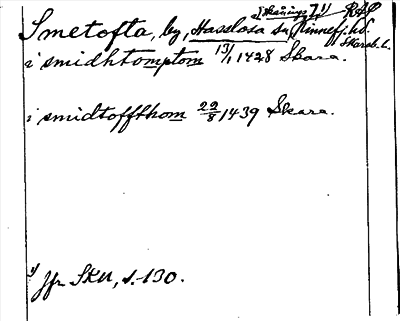 [Skånings?] 1) RAP
Smetofta, by, Hasslösa sn, Kinnef. hd.
Skarab. l.
i smidhtomptom 13/1 1428 Skara.
i smidtoffthom 22/8 1439 Skara.
1) Jfr SKU, s. 130.